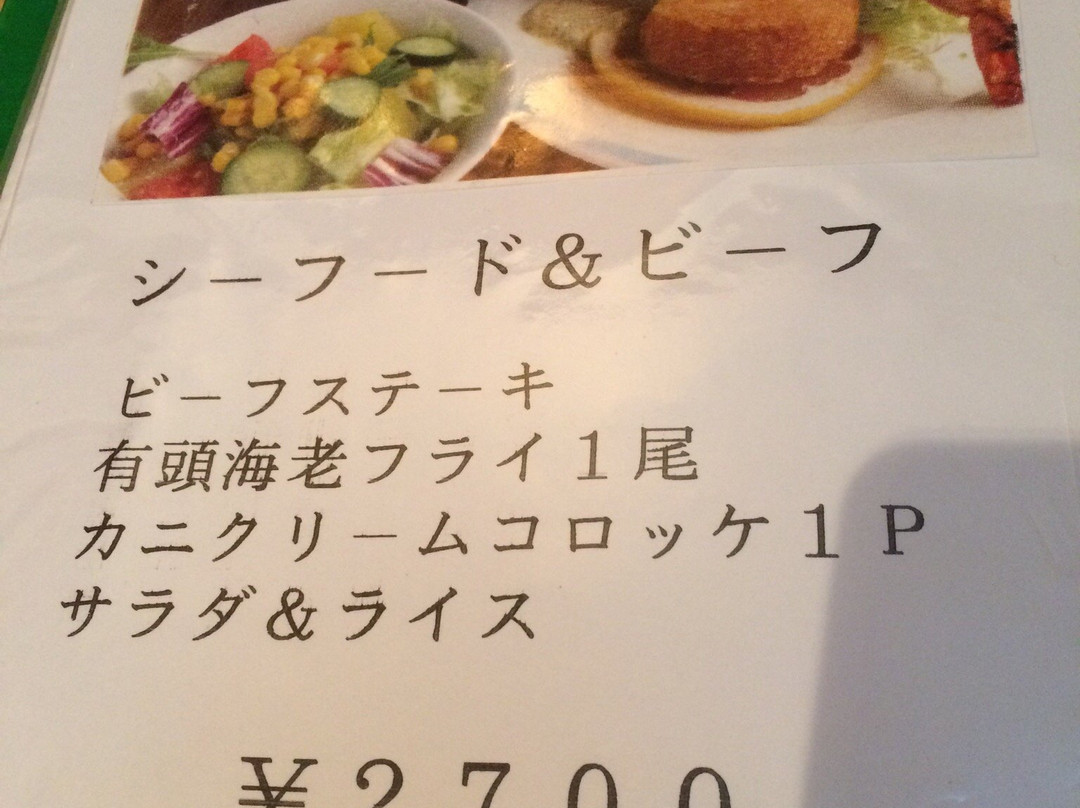 シーフード＆ビーフ
ビーフステーキ
有頭海老フライ１尾
カニクリームコロッケ１Ｐ
サラダ＆ライス
￥２７００